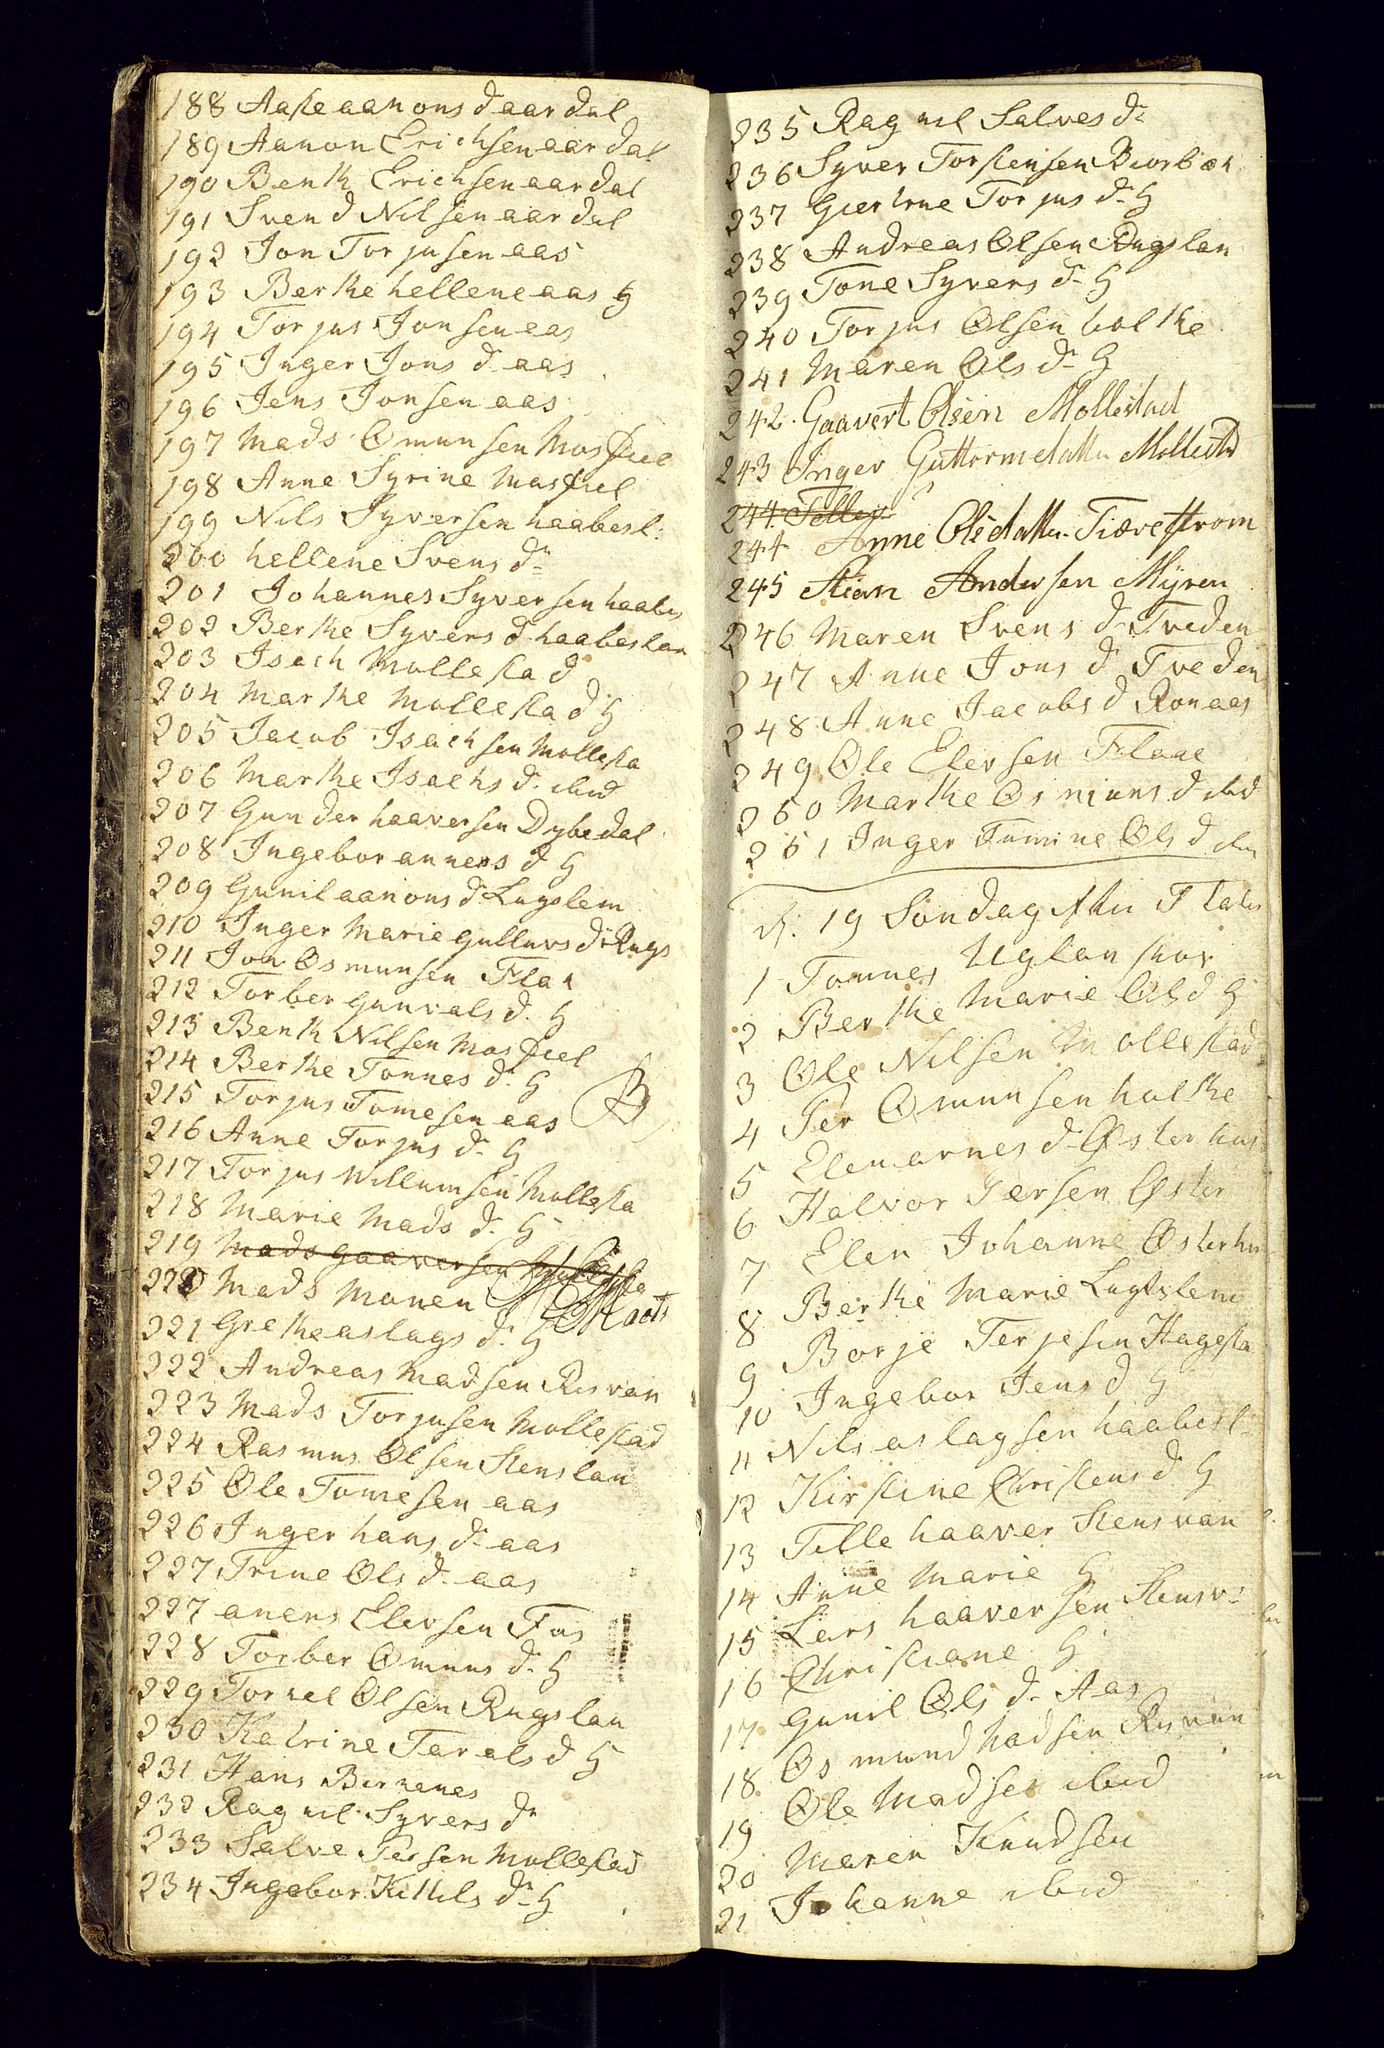 188 Aaske aanons d aardal
189 Aanon Erichsen aardal
190 Benth Erichsen aardal
191 Svend Nilsen aardal
192 Jon Torjusen aas
193 Berthe hellene aas H
194 Torjus Jonsen aas
195 Inger Jons d. aas
196 Jens Jonsen aas
197 Mads Omunsen Mosfiel
198 Anne Syrine Masfiel
199 Nils Syversen haabesl:
200 hellene Svens d:
201 Johannes Syversen haabes
202 Berthe Syvers d. haabeslan
203 Isach Mollestad
204 Marthe Mollestad H
205 Jacob Isachsen Mollesta
206 Marthe Isachs d. ibid
207 Gunder haaversen Dybedal
208 Ingebor anners d H
209 Gunil aanons d. Lugslem
210 Inger Marie Gulluvs d: Rugs
211 Jon Osmunsen Flak
212 Torber Gunvals d. H
213 Benth Nilsen Mosfiel
214 Berthe Tonnes d. H
215 Torjus Tomesen aas
216 Anne Torjus d. H
217 Torjus Willumsen Mollesta
218 Marie Mads d. H
219 Mads Gaaversen
220 Mads Monen
221 Grethe aslags d. H
222 Andreas Madsen Risvan
223 Mads Torjusen Mollestad
224 Rasmus Olsen Stenslan
225 Ole Tomesen aas
226 Inger hans d. aas
227 Trine Ols d. aas
227 aners Elevsen Fos
228 Torber Omuns d. H
229 Torkel Olsen Rugslan
230 Katrine Tarals d H
231 Hans Birkenes
232 Ragnil Syvers d:
233 Salve Persen Mollestad
234 Ingebor Kittils d: H
235 Ragnil Salves d:
236 Syver Torstensen Biorbæk
237 Giertrue Torjus d. H
238 Andreas Olsen Rugslan
239 Tone Syvers d. H
240 Torjus Olsen holthe
241 Maren Ols d. H
242. Gaavert Olsen Mollestad
243 Inger Guttormsdatter Mollestd
244 Tellev
244 Anne Olsdatter Tiævestrøm
245 Stian Andersen Myren
246 Maren Svens d. Tveden
247 Anne Jons d Tveden
248 Anne Jacobs d Ronaas
249 Ole Elevsen Flaae
250 Marthe Osmuns d ibid
251 Inger Tomine Ols d
19 Søndag efter
1 Tonnes Uglanskor
2 Berthe Marie Ols d H
3 Ole Nilsen Mollestad
4 Per Omunsen holthe
5 Elen arnes d. Østerhus
6 Halvor Persen Øster
7 Elen Johanne Østerhu
8 Berthe Marie Lugtslem
9 Borje Terjesen Hagesta
10 Ingebor Jens d H
11 Nils aslagsen haabesl:
12 Kirstine Christens d H
13 Tille haaver Stensvan
14 Anne Marie H
15 Lars haaversen Stensv:
16 Christiane H
17 Gunil Ols d. Aas
18 Osmund Madsen Risvan
19 Ole Madsen ibid
20 Maren Knudsen
21 Johanne ibid